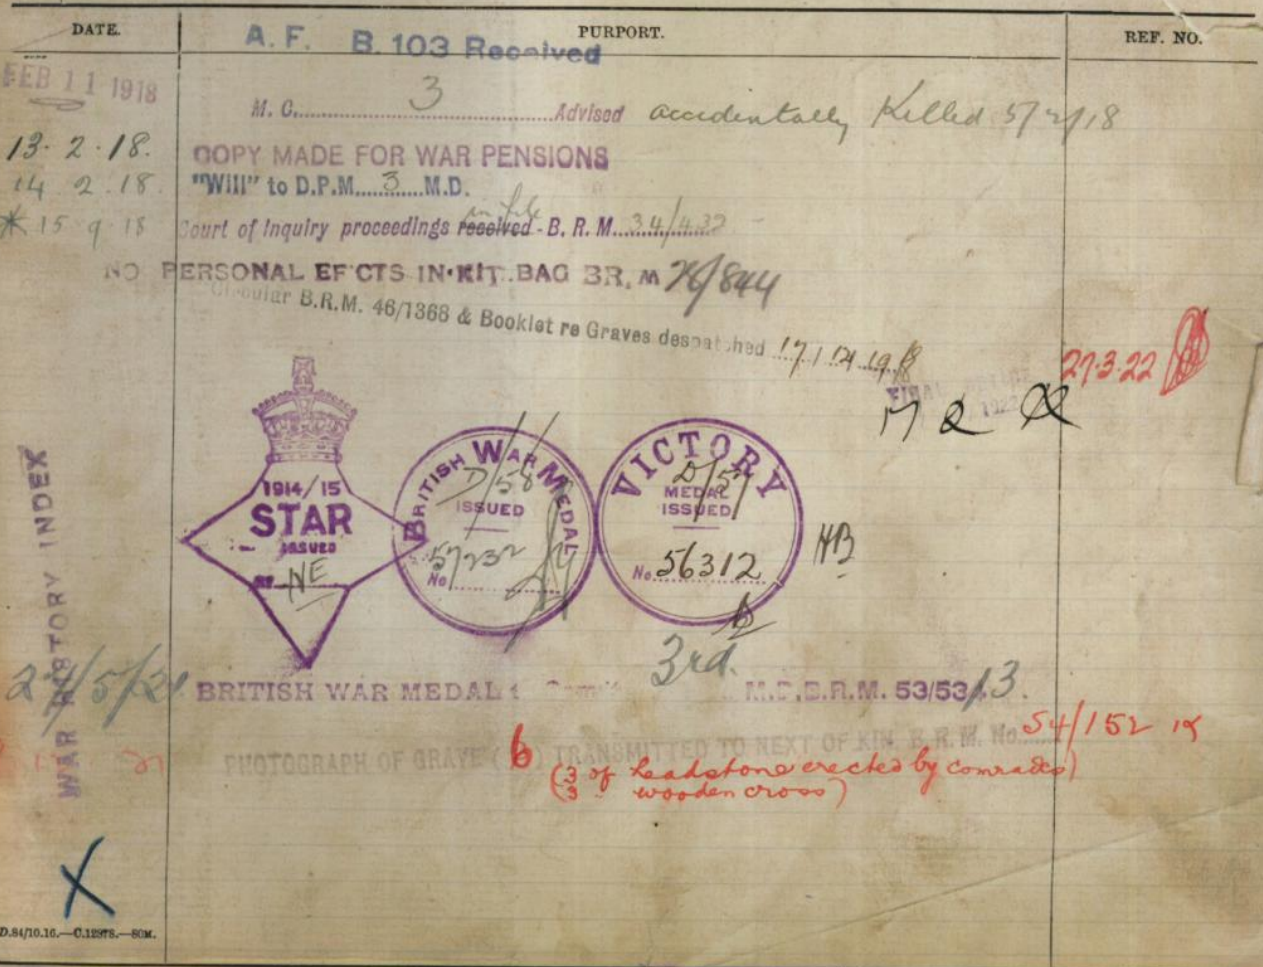 DATE. PURPORT. REF. NO.
A. F. B. 103 Received
FEB 11 1918
M. C. 3 Advised accidentally Killed 5/2/18
13. 2. 18. COPY MADE FOR WAR PENSIONS
14 2. 18. "Will" to D.P.M....3....M.D.
* 15 9. 18 Court of Inquiry proceedings received in file - B. R. M. 34/432
NO PERSONAL EF'CTS IN KIT BAG BR. M 76/844
Circular B.R.M. 46/1368 & Booklet re Graves despatched 17/12/1918
27.3.22
FINAL
1922
WAR HISTORY INDEX
1914/15
STAR
ISSUED
NE
BRITISH WAR MEDAL
D/58
ISSUED
57232
No
VICTORY
D/57
MEDAL
ISSUED
No. 56312
HB
3rd.
BRITISH WAR MEDAL M.D.B.R.M. 53/53/13.
PHOTOGRAPH OF GRAVE (6) TRANSMITTED TO NEXT OF KIN, B.R.M. No. 54/152
(3 of headstone erected by comrades)
(3 " wooden cross)
X
D.84/10.16.—C.12978.—80M.